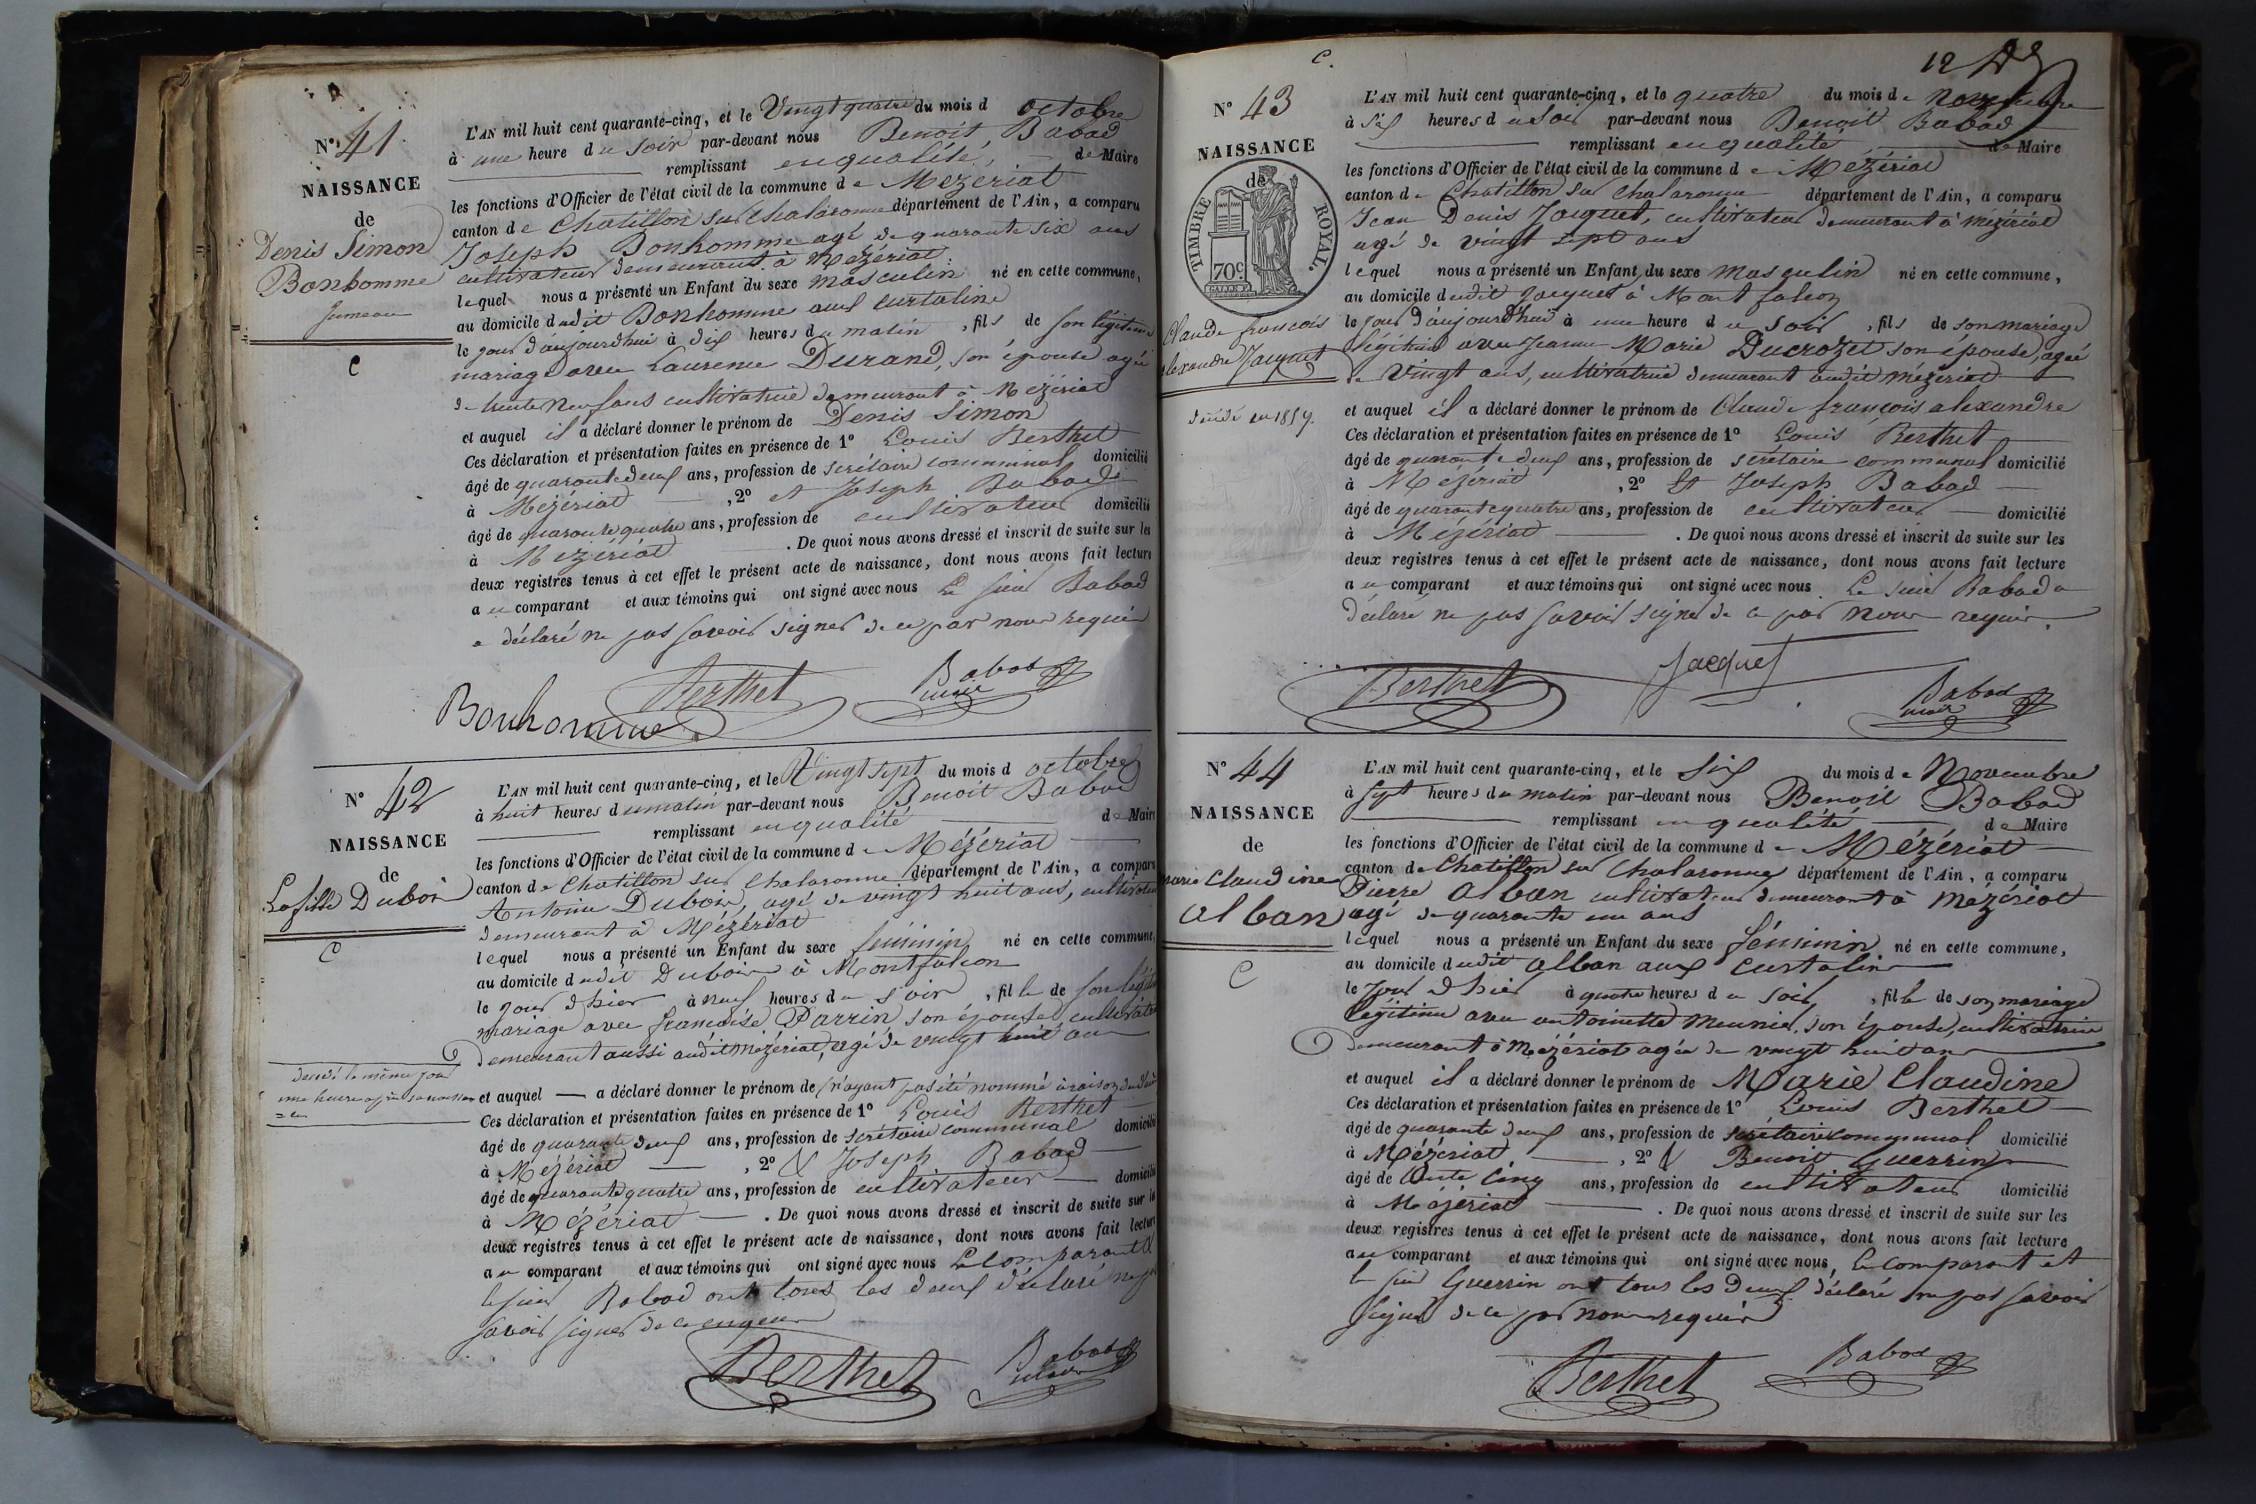 N° 41
NAISSANCE
de
Denis Simon
Bonhomme
Jumeau
C
L'AN mil huit cent quarante-cinq, et le Vingt quatre du mois d octobre
à une heure du soir par-devant nous Benoit Babad
remplissant en qualité, de Maire
les fonctions d'Officier de l'état civil de la commune de Mézériat
canton de Chatillon sur Chalaronne département de l'Ain, a comparu
Joseph Bonhomme agé de quarante six ans
cultivateur demeurant à Mézériat
lequel nous a présenté un Enfant du sexe masculin né en cette commune,
au domicile dudit Bonhomme aux Curtaline
le jour d'aujourdhui à dix heures du matin, fils de son légitime
mariage avec Laurence Durand, son épouse agée
de trente neuf ans cultivatrice demeurant à Mézériat
et auquel il a déclaré donner le prénom de Denis Simon
Ces déclaration et présentation faites en présence de 1° Louis Berthet
âgé de quarante deux ans, profession de secrétaire communal domicilié
à Mézériat, 2° et Joseph Babad
âgé de quarante quatre ans, profession de cultivateur domicilié
à Mézériat. De quoi nous avons dressé et inscrit de suite sur les
deux registres tenus à cet effet le présent acte de naissance, dont nous avons fait lecture
au comparant et aux témoins qui ont signé avec nous Le sieur Babad
a déclaré ne pas savoir signer de ce par nous requis
Bonhomme Berthet Babad
maire
N° 42
NAISSANCE
de
La fille Dubois
C
décédé le même jour
une heure après sa naissan
=ce
L'AN mil huit cent quarante-cinq, et le Vingt sept du mois d octobre
à huit heures du matin par-devant nous Benoit Babad
remplissant en qualité de Maire
les fonctions d'Officier de l'état civil de la commune de Mézériat
canton de Chatillon sur Chalaronne département de l'Ain, a comparu
Antoine Dubois, agé de vingt huit ans, cultivateur
demeurant à Mézériat
lequel nous a présenté un Enfant du sexe féminin né en cette commune,
au domicile dudit Dubois à Montfalcon
le jour d'hier à neuf heures du soir, fille de son légiti
mariage avec françoise Parrin son épouse cultivatri
demeurant aussi audit Mézériat, agé de vingt huit ans
et auquel — a déclaré donner le prénom de n'ayant pas été nommé à raison du
Ces déclaration et présentation faites en présence de 1° Louis Berthet
âgé de quarante deux ans, profession de secrétaire communal domicilié
à Mézériat, 2° & Joseph Babad
âgé de quarante quatre ans, profession de cultivateur domicilié
à Mézériat. De quoi nous avons dressé et inscrit de suite sur les
deux registres tenus à cet effet le présent acte de naissance, dont nous avons fait lecture
au comparant et aux témoins qui ont signé avec nous Le comparant &
le sieur Babad ont tous les deux déclaré ne pas
savoir signer de ce enquis
Berthet Babad
maire
C.
12
N° 43
NAISSANCE
de
TIMBRE ROYAL.
70c.
Claude françois
alexandre Jacquet
décédé en 1859.
L'AN mil huit cent quarante-cinq, et le quatre du mois de Novembre
à six heures du soir par-devant nous Benoit Babad
remplissant en qualité de Maire
les fonctions d'Officier de l'état civil de la commune de Mézériat
canton de Chatillon sur Chalaronne département de l'Ain, a comparu
Jean Denis Jacquet, cultivateur demeurant à Mézériat
agé de vingt sept ans
lequel nous a présenté un Enfant du sexe masculin né en cette commune,
au domicile dudit Jacquet à Mont falcon
le jour d'aujourdhui à une heure du soir, fils de son mariage
légitime avec Jeanne Marie Ducrozet son épouse, agée
de vingt ans, cultivatrice demeurant audit Mézériat
et auquel il a déclaré donner le prénom de Claude françois alexandre
Ces déclaration et présentation faites en présence de 1° Louis Berthet
âgé de quarante deux ans, profession de secrétaire communal domicilié
à Mézériat, 2° & Joseph Babad
âgé de quarante quatre ans, profession de cultivateur domicilié
à Mézériat. De quoi nous avons dressé et inscrit de suite sur les
deux registres tenus à cet effet le présent acte de naissance, dont nous avons fait lecture
au comparant et aux témoins qui ont signé avec nous. Le sieur Babad a
déclaré ne pas savoir signer de ce par nous requis.
Berthet Jacquet Babad
maire
N° 44
NAISSANCE
de
marie Claudine
alban
C
L'AN mil huit cent quarante-cinq, et le Six du mois de Novembre
à sept heures du matin par-devant nous Benoit Babad
remplissant en qualité de Maire
les fonctions d'Officier de l'état civil de la commune de Mézériat
canton de Chatillon sur Chalaronne département de l'Ain, a comparu
Pierre alban cultivateur demeurant à Mézériat
agé de quarante un ans
lequel nous a présenté un Enfant du sexe féminin né en cette commune,
au domicile dudit alban aux Curtaline
le jour d'hier à quatre heures du soir, fille de son mariage
légitime avec antoinette Meunier son épouse, cultivatrice
demeurant à Mézériat agée de vingt huit ans
et auquel il a déclaré donner le prénom de Marie Claudine
Ces déclaration et présentation faites en présence de 1° Louis Berthet
âgé de quarante deux ans, profession de secrétaire communal domicilié
à Mézériat, 2° & Benoit Guerrin
âgé de trente cinq ans, profession de cultivateur domicilié
à Mézériat. De quoi nous avons dressé et inscrit de suite sur les
deux registres tenus à cet effet le présent acte de naissance, dont nous avons fait lecture
au comparant et aux témoins qui ont signé avec nous, Le comparant et
le sieur Guerrin ont tous les deux déclaré ne pas savoir
signer de ce par nous requis
Berthet Babad